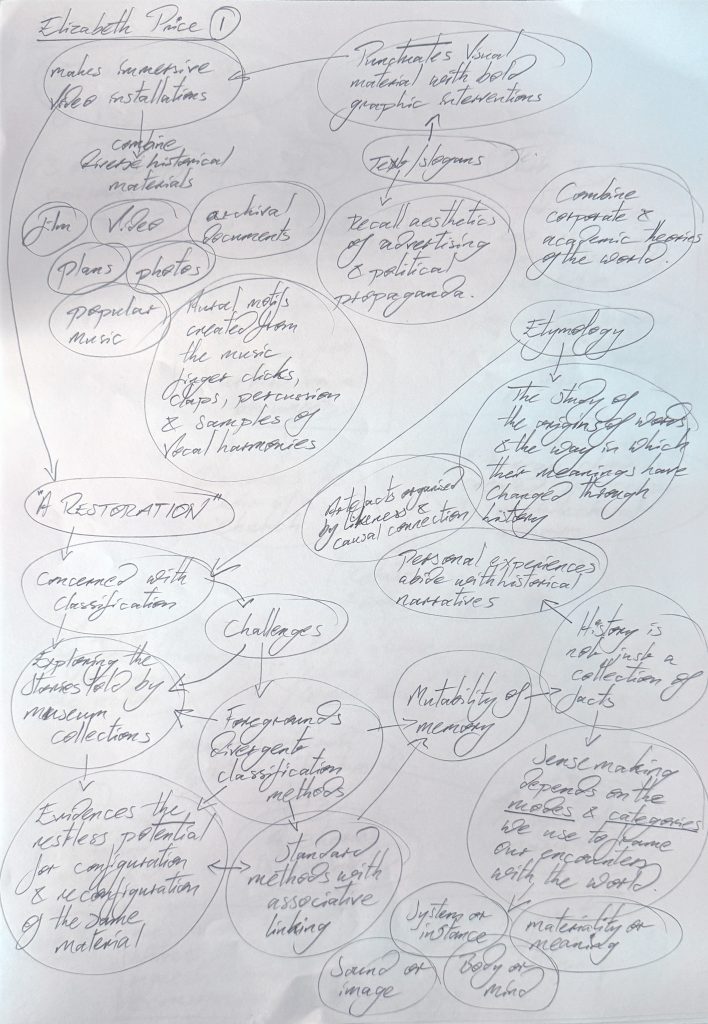 Elizabeth Price 1
makes immersive
video installations
Punctuates Visual
material with bold
graphic interventions
combine
diverse historical
materials
Text/slogans
film
Video
archival
documents
plans
photos
popular
music
Recall aesthetics
of advertising
& political
propaganda.
Combine
corporate &
academic theories
of the world.
Mural motifs
created from
the music
finger clicks,
claps, percussion
& samples of
Vocal harmonies
Etymology
The study of
the origins of words
& the way in which
their meanings have
changed through
history
"A RESTORATION"
Artefacts organised
by likeness &
causal connection
Concerned with
classification
Personal experiences
abide with historical
narratives
Challenges
History is
not just a
collection of
facts
Exploring the
stories told by
museum
collections
Foregrounds
divergent
classification
methods
Mutability of
memory
Sense making
depends on the
modes & categories
we use to frame
our encounters
with the world.
Evidences the
restless potential
for configuration
& reconfiguration
of the same
material
Standard
methods with
associative
linking
System or
instance
materiality or
meaning
Sound or
image
Body or
mind